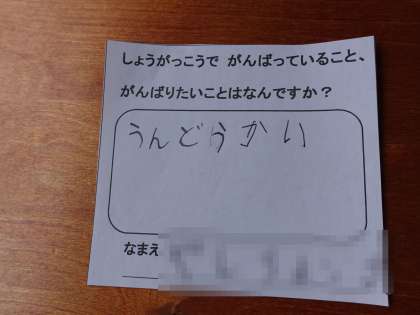 しょうがっこうで がんばっていること、
がんばりたいことはなんですか？
うんどうかい
なまえ